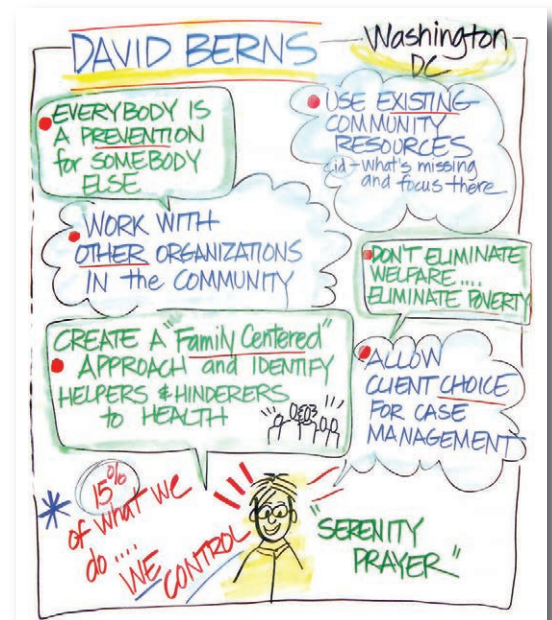 DAVID BERNS
Washington
DC
EVERYBODY IS
A PREVENTION
for SOMEBODY
ELSE
USE EXISTING
COMMUNITY
RESOURCES
id-what's missing
and focus there
WORK WITH
OTHER ORGANIZATIONS
IN the COMMUNITY
DON'T ELIMINATE
WELFARE....
ELIMINATE POVERTY
CREATE A "Family Centered"
APPROACH and IDENTIFY
HELPERS & HINDERERS
to HEALTH
ALLOW
CLIENT CHOICE
FOR CASE
MANAGEMENT
15%
of what we
do....
WE CONTROL
"SERENITY
PRAYER"